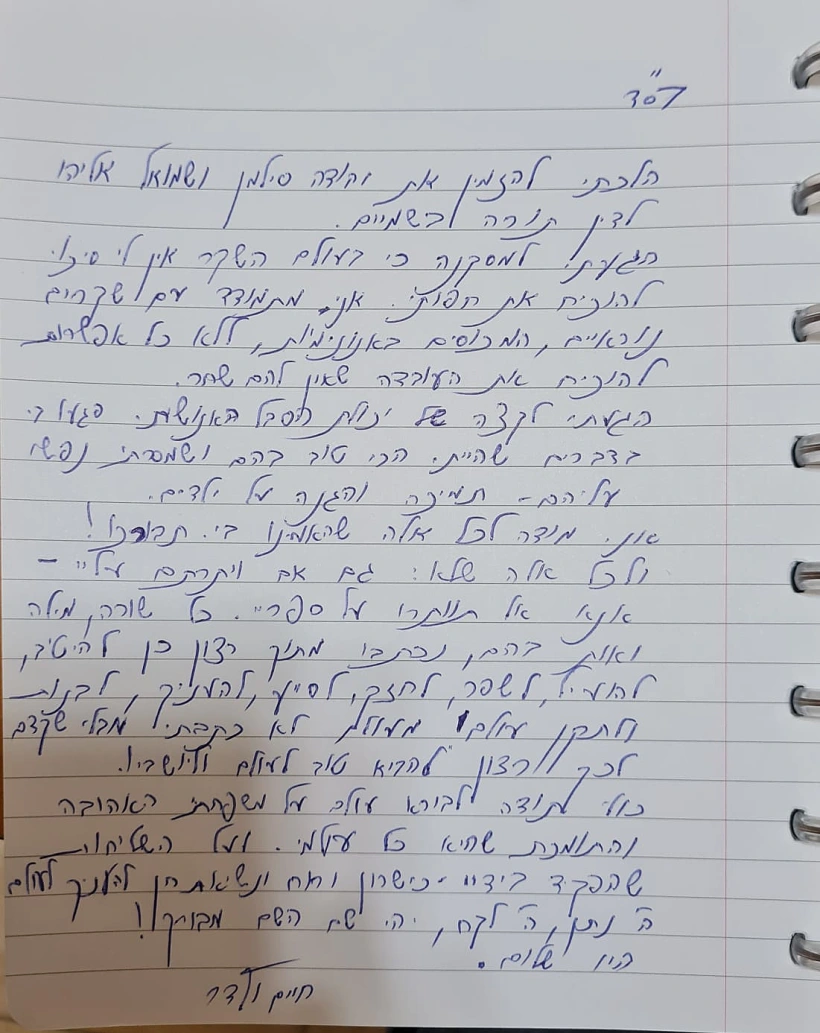 בס"ד
הלכתי להזמין את יהודה סילמן ושמואל אליהו
לדין תורה בשמיים.
הגעתי למסקנה כי בעולם השקר אין לי סיכוי
להוכיח את חפותי. אני מתמודד עם שקרים
נוראיים, המכוסים באנונימיות, ללא כל אפשרות
להוכיח את העובדה שאין להם שחר.
הגעתי לקצה של יכולת הסבל האנושית. פגעו בי
בדברים שהייתי הכי טוב בהם ושמסרתי נפשי
עליהם - תמיכה והגנה על ילדים.
אני מודה לכל אלה שהאמינו בי. תבורכו!
ולכל אלה שלא: גם אם ויתרתם עליי -
אנא אל תוותרו על ספריי. כל שורה, מילה
ואות בהם, נכתבו מתוך רצון כן להיטיב,
להועיל, לשפר, לחזק, לסייע, להעניק, לבנות
ולתקן עולם. מעולם לא כתבתי מבלי שקדם
לכך רצון להביא טוב לעולם וליושביו.
כולי תודה לבורא עולם על משפחתי האהובה
והתומכת שהיא כל עולמי. ועל השליחות
שהפקיד בידיי - כישרון וחח ונשיאת חן להעניק לעולם
ה' נתן, ה' לקח, יהי שם השם מבורך!
היו שלום.
חיים ולדר